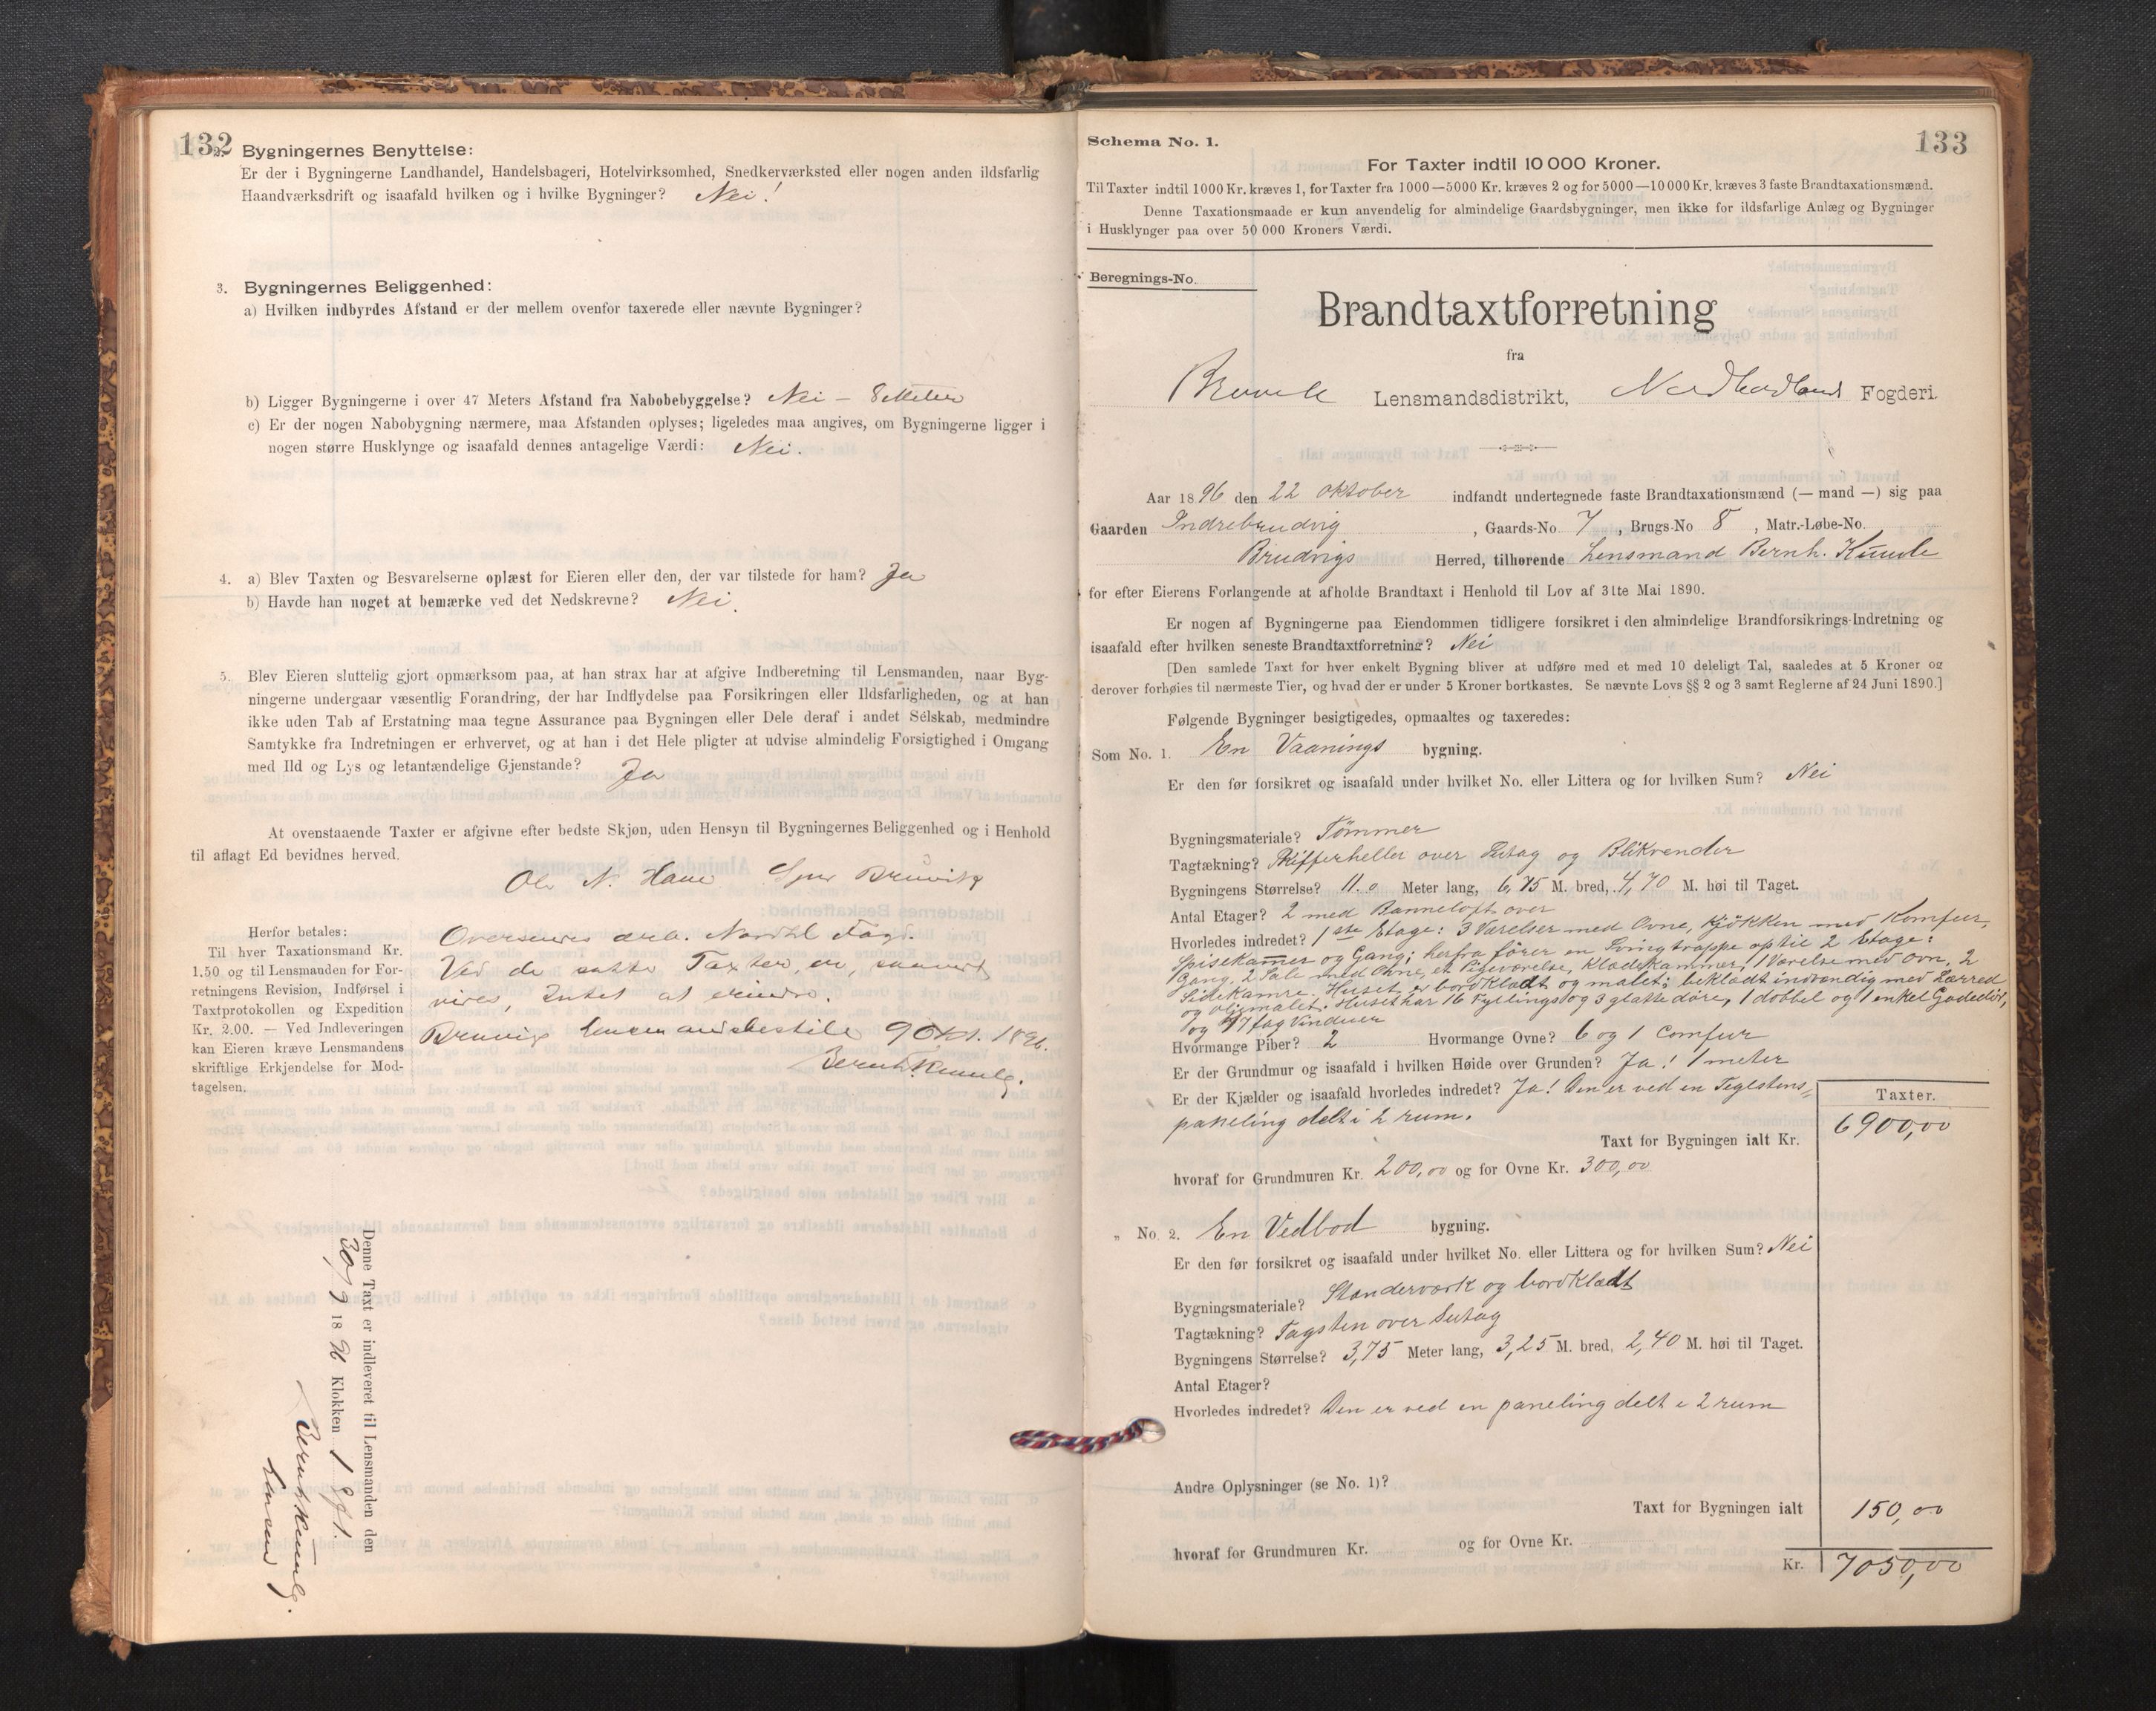 132
2. Bygningernes Benyttelse:
Er der i Bygningerne Landhandel, Handelsbageri, Hotelvirksomhed, Snedkerværksted eller nogen anden ildsfarlig
Haandværksdrift og isaafald hvilken og i hvilke Bygninger? Nei!
3. Bygningernes Beliggenhed:
a) Hvilken indbyrdes Afstand er der mellem ovenfor taxerede eller nævnte Bygninger?
b) Ligger Bygningerne i over 47 Meters Afstand fra Nabobebyggelse? Nei – 8 Meter
c) Er der nogen Nabobygning nærmere, maa Afstanden oplyses; ligeledes maa angives, om Bygningerne ligger i
nogen større Husklynge og isaafald dennes antagelige Værdi: Nei.
4. a) Blev Taxten og Besvarelserne oplæst for Eieren eller den, der var tilstede for ham? Ja
b) Havde han noget at bemærke ved det Nedskrevne? Nei.
5. Blev Eieren sluttelig gjort opmærksom paa, at han strax har at afgive Indberetning til Lensmanden, naar Byg-
ningerne undergaar væsentlig Forandring, der har Indflydelse paa Forsikringen eller Ildsfarligheden, og at han
ikke uden Tab af Erstatning maa tegne Assurance paa Bygningen eller Dele deraf i andet Selskab, medmindre
Samtykke fra Indretningen er erhvervet, og at han i det Hele pligter at udvise almindelig Forsigtighed i Omgang
med Ild og Lys og letantændelige Gjenstande? Ja
At ovenstaaende Taxter er afgivne efter bedste Skjøn, uden Hensyn til Bygningernes Beliggenhed og i Henhold
til aflagt Ed bevidnes herved.
Ole N. Hane Bruvik
Herfor betales:
Til hver Taxationsmand Kr.
1,50 og til Lensmanden for For-
retningens Revision, Indførsel i
Taxtprotokollen og Expedition
Kr. 2.00. — Ved Indleveringen
kan Eieren kræve Lensmandens
skriftlige Erkjendelse for Mod-
tagelsen.
Oversendes ærb. Nordhl Fogd.
Ved de satte Taxter, er,
vides, Intet at erindre.
Bruvigs Lensmandsbestil 9 Okt. 1896.
Bernh. Kunle.
Denne Taxt er indleveret til Lensmanden den
30/9 18 96 Klokken 1 Eft.
Bernh Kunle.
Lensm
Schema No. 1.
133
For Taxter indtil 10 000 Kroner.
Til Taxter indtil 1000 Kr. kræves 1, for Taxter fra 1000—5000 Kr. kræves 2 og for 5000—10000 Kr. kræves 3 faste Brandtaxationsmænd.
Denne Taxationsmaade er kun anvendelig for almindelige Gaardsbygninger, men ikke for ildsfarlige Anlæg og Bygninger
i Husklynger paa over 50 000 Kroners Værdi.
Beregnings-No.
Brandtaxtforretning
fra
Bruvik Lensmandsdistrikt, Nordhordland Fogderi.
Aar 1896 den 22 Oktober indfandt undertegnede faste Brandtaxationsmænd (— mand —) sig paa
Gaarden Indrebrudvig, Gaards-No 7, Brugs-No 8, Matr.-Løbe-No.
Brudvigs Herred, tilhørende Lensmand Bernh. Kunle
for efter Eierens Forlangende at afholde Brandtaxt i Henhold til Lov af 31te Mai 1890.
Er nogen af Bygningerne paa Eiendommen tidligere forsikret i den almindelige Brandforsikrings-Indretning og
isaafald efter hvilken seneste Brandtaxtforretning? Nei
[Den samlede Taxt for hver enkelt Bygning bliver at udføre med et med 10 deleligt Tal, saaledes at 5 Kroner og
derover forhøies til nærmeste Tier, og hvad der er under 5 Kroner bortkastes. Se nævnte Lovs §§ 2 og 3 samt Reglerne af 24 Juni 1890.]
Følgende Bygninger besigtigedes, opmaaltes og taxeredes:
Som No. 1. En Vaanings bygning.
Er den før forsikret og isaafald under hvilket No. eller Littera og for hvilken Sum? Nei
Bygningsmateriale? Tömmer
Tagtækning? Skifferheller over Sutag og Blikrender
Bygningens Størrelse? 11.0 Meter lang, 6,75 M. bred, 4,70 M. høi til Taget.
Antal Etager? 2 med Banneloft over
Hvorledes indredet? 1ste Etage: 3 Værelser med Ovne, Kjökken med Komfur,
Spisekammer og Gang; herfra förer en Svingtrappe op til 2 Etage:
Gang, 2 Sale med Ovne, et Pigeværelse, Klædekammer, 1 Værelse med ovn, 2
Sidekamre. Huset er bordkladt og malet; bekladt indvendig med Lærred
og oljemalet. Huset har 16 Fyllings og 3 glatte döre, 1 dobbel og 1 enkel Gadedör,
og 17 fag Vinduer
Hvormange Piber? 2 Hvormange Ovne? 6 og 1 Comfur
Er der Grundmur og isaafald i hvilken Høide over Grunden? Ja! 1 meter
Er der Kjælder og isaafald hvorledes indredet? Ja! Den er ved en Teglstens=
paneling delt i 2 rum.
Taxter.
Taxt for Bygningen ialt Kr. 6900,00
hvoraf for Grundmuren Kr. 200,00 og for Ovne Kr. 300,00
„ No. 2. En Vedbod bygning.
Er den før forsikret og isaafald under hvilket No. eller Littera og for hvilken Sum? Nei
Bygningsmateriale? Standerværk og bordkladt
Tagtækning? Tagsten over Sutag
Bygningens Størrelse? 3,75 Meter lang, 3,25 M. bred, 2,40 M. høi til Taget.
Antal Etager?
Hvorledes indredet? Den er ved en paneling delt i 2 rum
Andre Oplysninger (se No. 1)?
Taxt for Bygningen ialt 150,00
hvoraf for Grundmuren Kr. og for Ovne Kr.
Kr. 7050,00